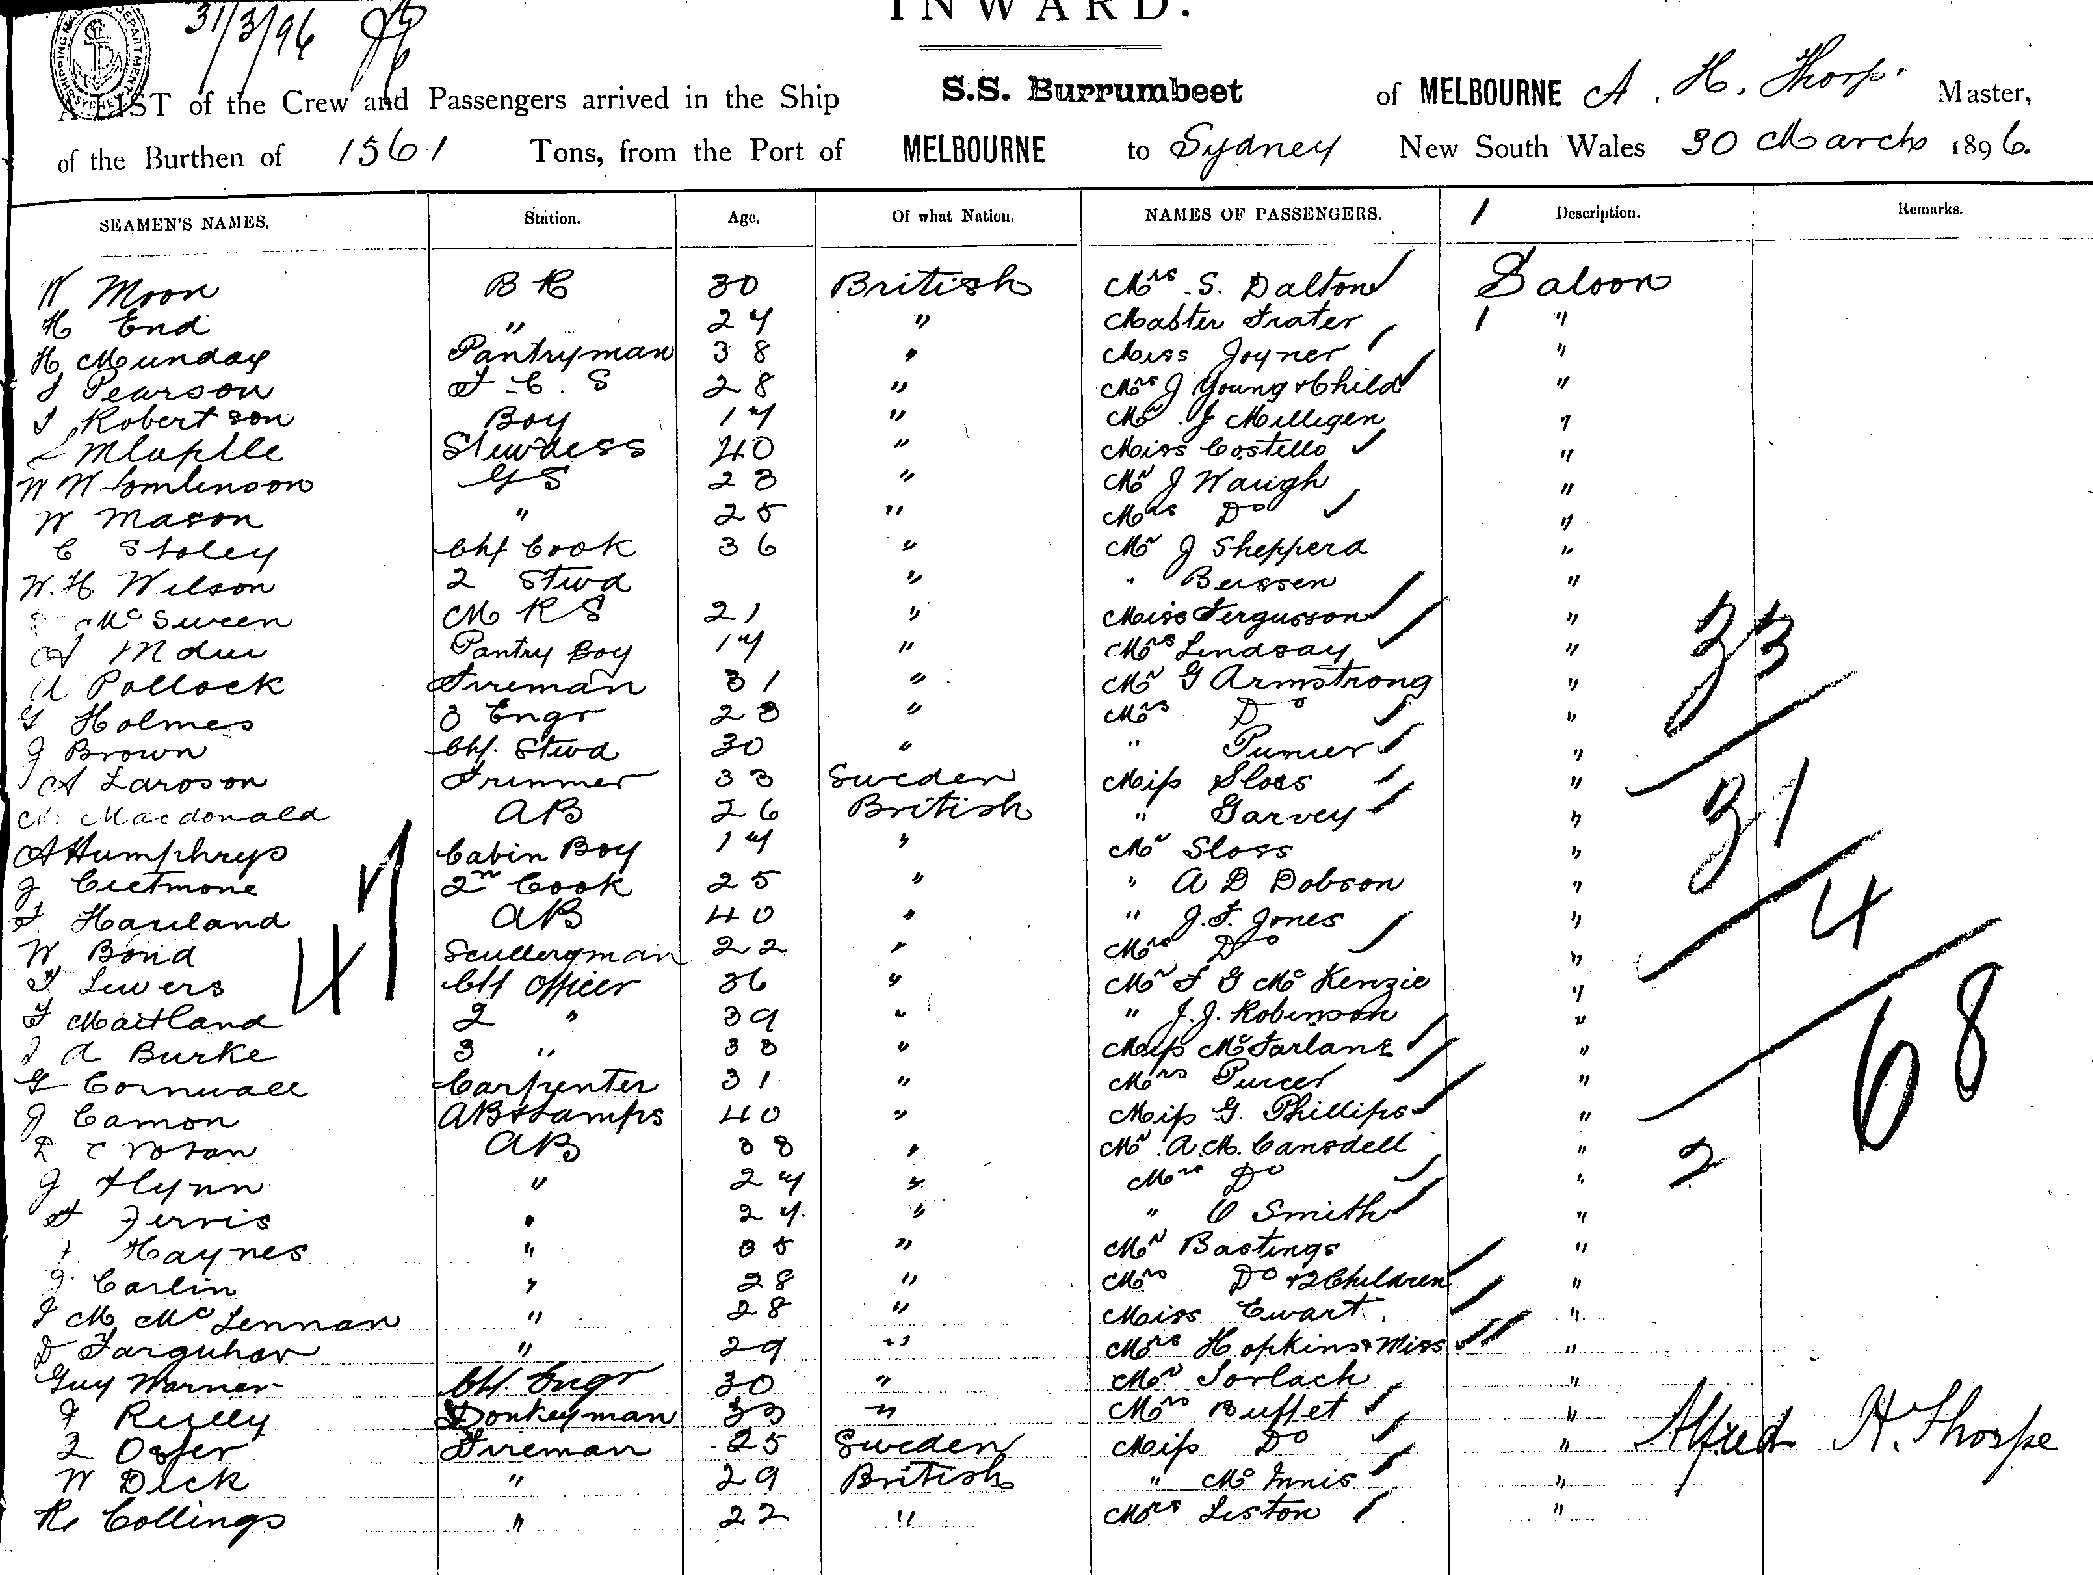 31/3/96
INWARD.
A LIST of the Crew and Passengers arrived in the Ship S.S. Burrumbeet of MELBOURNE A. H. Thorp. Master,
of the Burthen of 1561 Tons, from the Port of MELBOURNE to Sydney New South Wales 30 March 1896.
SEAMEN'S NAMES. Station. Age. Of what Nation. NAMES OF PASSENGERS. 1 Description. Remarks.
W Moon BR 30 British Mrs. S. Dalton Saloon
H End " 24 " Master Frater 1 "
H Munday Pantryman 38 " Miss Joyner "
J Pearson F.C.S 28 " Mrs J Young & Child "
J Robertson Boy 17 " Mr J Milligen "
Stewdess 40 " Miss Costello "
W W Tomlinson GS 23 " Mr J Waugh "
W Mason " 25 " Mrs Do "
C Stoley Chf Cook 36 " Mr J Shepperd "
W.H. Wilson 2 Stwd " " Beissen "
McSween MRS 21 " Miss Fergusson "
A Pantry Boy 17 " Mrs Lindsay "
A Pollock Fireman 31 " Mr G Armstrong "
G Holmes 3 Engr 23 " Mrs Do "
J Brown Chf. Stwd 30 " " "
A Larsson Trimmer 33 Sweden Miss Sloss "
M. Macdonald AB 26 British " Garvey "
A Humphrys Cabin Boy 17 " Mr Sloss "
J 2nd Cook 25 " " A D Dobson "
F. Harland AB 40 " " J.F. Jones "
W Bond Sculleryman 22 " Mrs Do "
F Lewers Chf Officer 36 " Mr F G McKenzie "
F Maitland 2 " 39 " " J.J. Robinson "
J A Burke 3 " 33 " Miss McFarlane "
G Cornwall Carpenter 31 " Mrs Purcer "
J Camon AB & Lamps 40 " Miss G. Phillips "
AB 38 " Mr A.M. Cansdell " 2
J Flynn " 24 " Mrs Do "
F Jervis " 24 " " C Smith "
Haynes " 35 " Mr Bastings "
J Carlin " 28 " Mrs Do & 2 Children "
J M McLennan " 28 " Miss Ewart. "
D Farquhar " 29 " Mrs Hopkins & Miss "
Guy Warner Chf. Engr 30 " Mr Sorlach "
J Reilly Donkeyman 33 " Mrs Buffet "
Fireman 25 Sweden Miss Do "
W Dick " 29 British " McInnis "
R Collings " 22 " Mrs Liston "
47
33
31
4
68
Alfred H. Thorpe